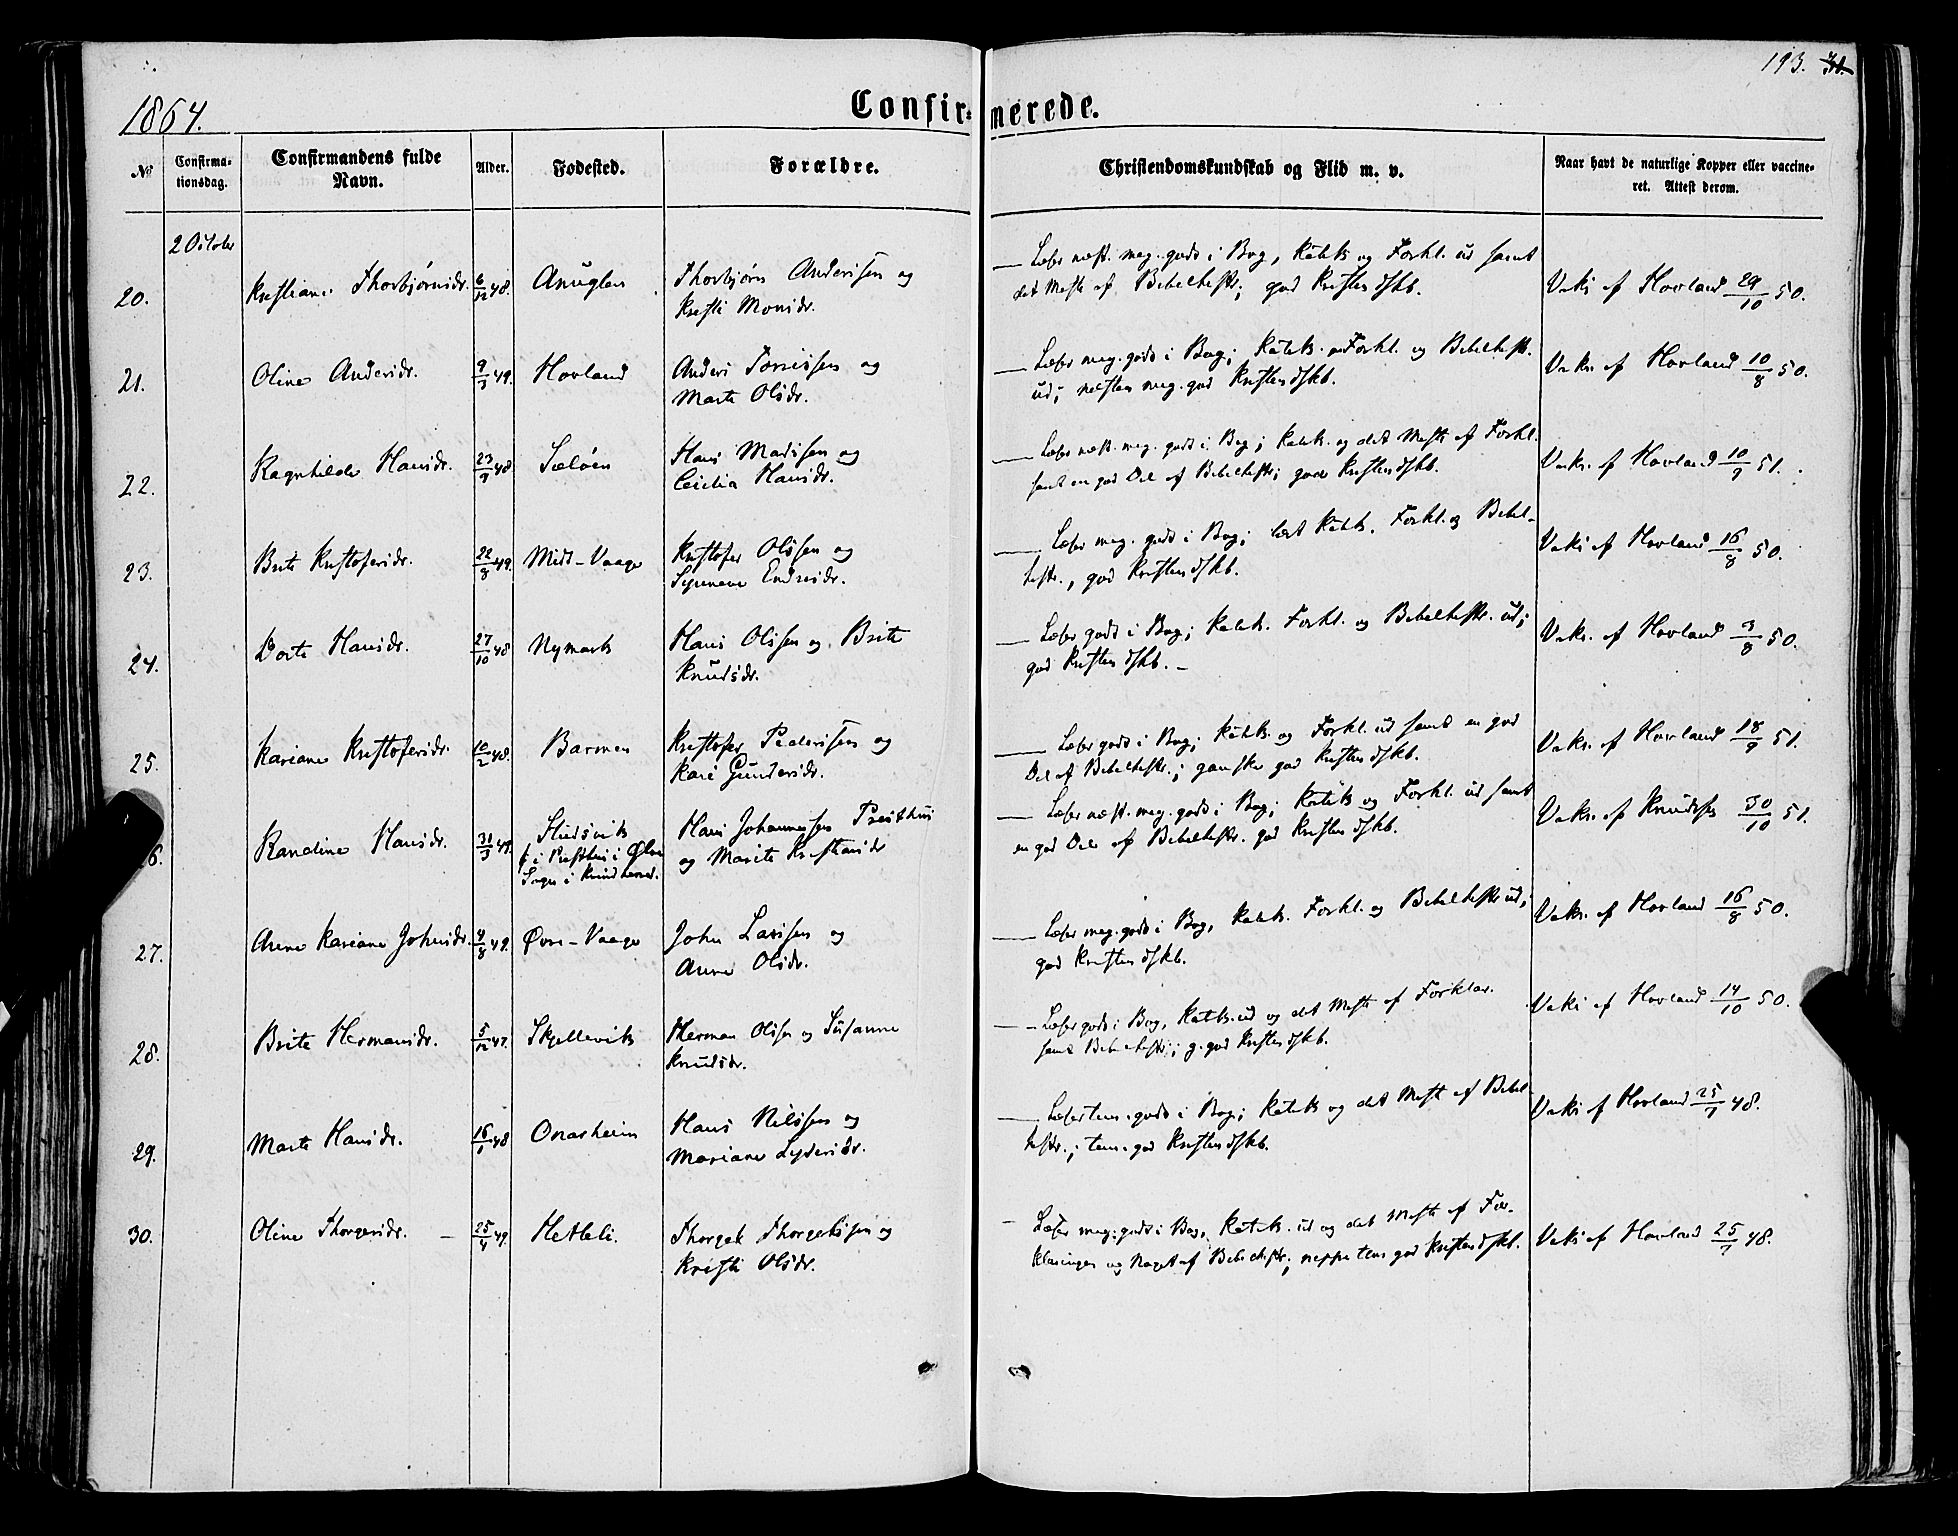 193.
1864.
Confirmerede.
No
Confirma-
tionsdag.
Confirmandens fulde
Navn.
Alder.
Fødested.
Forældre.
Christendomskundskab og Flid m. v.
Naar havt de naturlige Kopper eller vaccine-
ret. Attest derom.
2 October
20. Kristiane Thorbjørnsdr. 6/12 48. Anuglen Thorbjørn Anderssen og
Kristi Monsdr.
Læser næst. meg. godt i Bog, Katek. og Forkl. ud samt
det Meste af Bibelhistr.; god Kristendskb.
Vaks. af Hovland 29/10 50.
21. Oline Andersdr. 9/3 49. Hovland Anders Tørrissen og
Marte Olsdr.
Læser meg. godt i Bog; Katek. Forkl. og Bibelhistr.
ud; næsten meg. god Kristendskb.
Vaks. af Hovland 10/8 50.
22. Ragnhilde Hansdr. 23/9 48 Sæløen Hans Madssen og
Cecilia Hansdr.
Læser næst. meg. godt i Bog; Katek. og det Meste af Forkl.
samt en god Del af Bibelhistr; god Kristendskb.
Vaks. af Hovland 10/9 51.
23. Brite Kristofersdr. 22/8 49. Midt-Vaage Kristofer Olssen og
Synneve Endresdr.
Læser meg. godt i Bog; lært Katek. Forkl. og Bibel-
histr., god Kristendskb.
Vaks af Hovland 16/8 50.
24. Dorte Hansdr. 27/10 48 Nymark Hans Olssen og Brite
Knudsdr.
Læser godt i Bog; Katek. Forkl. og Bibelhistr. ud;
god Kristendskb. -
Vaks. af Hovland 3/8 50.
25. Kariane Kristofersdr. 10/2 48. Barmen Kristofer Pederssen og
Kari Gundersdr.
Læser godt i Bog; Katek. og Forkl. ud samt en god
Del af Bibelhistr.; ganske god Kristendskb.
Vaks. af Hovland 18/9 51.
6. Randine Hansdr. 31/3 49. Husvik
f. i Presthus i Ølve
Sogn i Kvindherred.
Hans Johannessen Presthus
og Marite Kristiansdr
Læser næst. meg. godt i Bog; Katek. og Forkl. ud samt
en god Del af Bibelhistr. god Kristendskb.
Vaks. af Knudsen 30/10 51.
27. Anne Kariane Johnsdr. 4/8 49. Øvre-Vaage John Larssen og
Anne Olsdr.
Læser meg. godt i Bog, Katek. Forkl. og Bibelhistr ud;
god Kristendskb.
Vaks. af Hovland 16/8 50.
28. Brite Hermansdr. 5/12 47. Skjellevik Herman Olssen og Susanne
Knudsdr.
Læser godt i Bog, Katek. ud og det Meste af Forklar.
samt Bibelhistr; g. god Kristendskb.
Vaks af Hovland 14/10 50.
29. Marte Hansdr. 48 Onarheim Hans Nilssen og
Mariane Lydersdr.
Læser tem. godt i Bog; Katek og det Meste af Bibel
histr.; tem. god Kristendskb.
Vaks af Hovland 25/7 48.
30. Oline Thorgersdr. - 25/4 49. Hetleli. Thorger Thorgerssen og
Kristi Olsdr.
Læser meg. godt i Bog, Katek. ud og det Meste af For-
klaringen og Noget af Bibelhistr; neppe tem. god Kristendskb.
Vaks af Hovland 25/7 48.